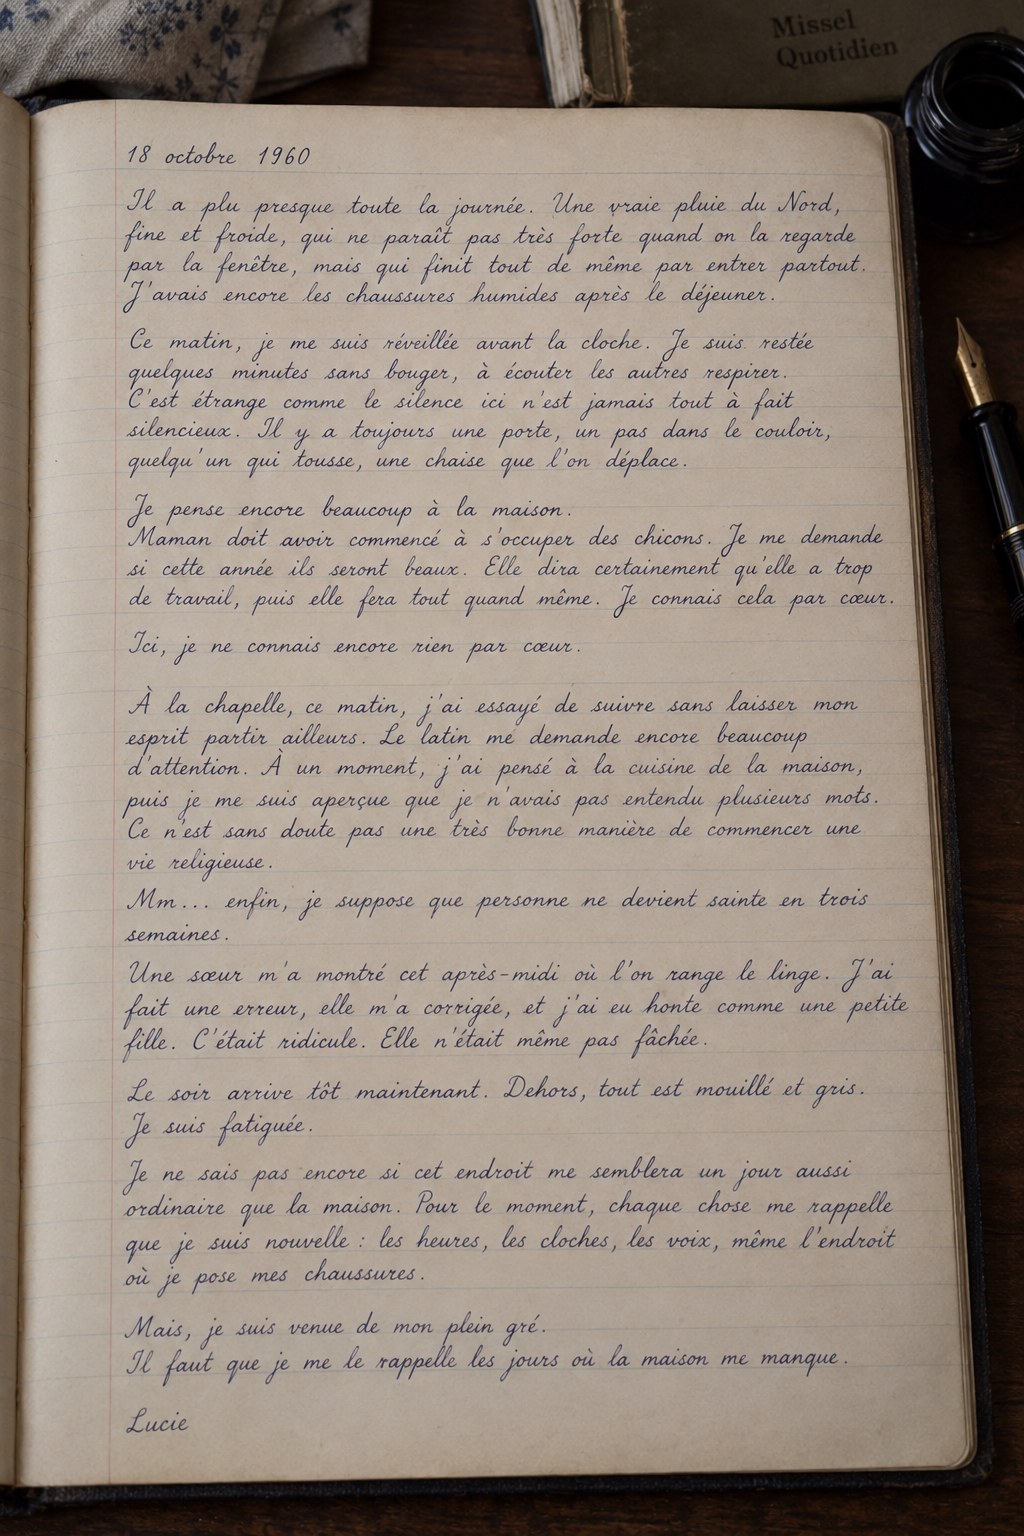 Missel
Quotidien
18 octobre 1960
Il a plu presque toute la journée. Une vraie pluie du Nord,
fine et froide, qui ne paraît pas très forte quand on la regarde
par la fenêtre, mais qui finit tout de même par entrer partout.
J'avais encore les chaussures humides après le déjeuner.
Ce matin, je me suis réveillée avant la cloche. Je suis restée
quelques minutes sans bouger, à écouter les autres respirer.
C'est étrange comme le silence ici n'est jamais tout à fait
silencieux. Il y a toujours une porte, un pas dans le couloir,
quelqu'un qui tousse, une chaise que l'on déplace.
Je pense encore beaucoup à la maison.
Maman doit avoir commencé à s'occuper des chicons. Je me demande
si cette année ils seront beaux. Elle dira certainement qu'elle a trop
de travail, puis elle fera tout quand même. Je connais cela par cœur.
Ici, je ne connais encore rien par cœur.
À la chapelle, ce matin, j'ai essayé de suivre sans laisser mon
esprit partir ailleurs. Le latin me demande encore beaucoup
d'attention. À un moment, j'ai pensé à la cuisine de la maison,
puis je me suis aperçue que je n'avais pas entendu plusieurs mots.
Ce n'est sans doute pas une très bonne manière de commencer une
vie religieuse.
Mm... enfin, je suppose que personne ne devient sainte en trois
semaines.
Une sœur m'a montré cet après-midi où l'on range le linge. J'ai
fait une erreur, elle m'a corrigée, et j'ai eu honte comme une petite
fille. C'était ridicule. Elle n'était même pas fâchée.
Le soir arrive tôt maintenant. Dehors, tout est mouillé et gris.
Je suis fatiguée.
Je ne sais pas encore si cet endroit me semblera un jour aussi
ordinaire que la maison. Pour le moment, chaque chose me rappelle
que je suis nouvelle : les heures, les cloches, les voix, même l'endroit
où je pose mes chaussures.
Mais, je suis venue de mon plein gré.
Il faut que je me le rappelle les jours où la maison me manque.
Lucie